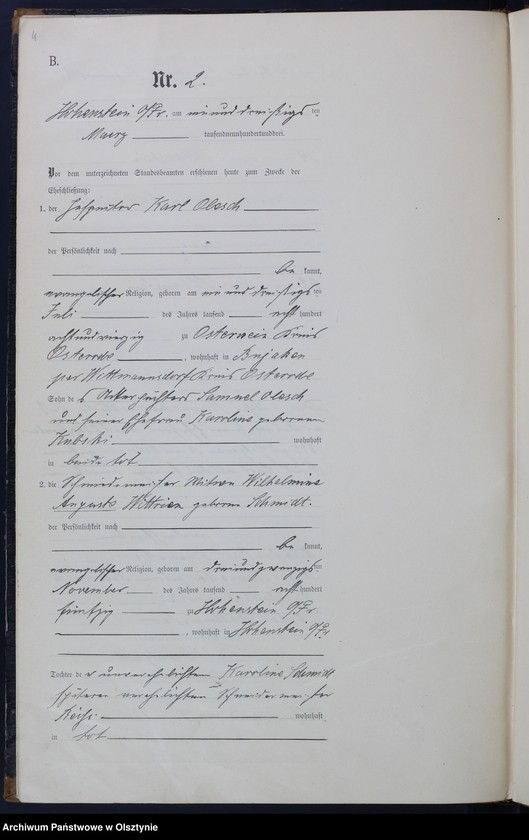 4
B.
Nr. 2.
Hohenstein O/Pr. am ein und dreißigs ten
Maerz tausendneunhundertunddrei.
Vor dem unterzeichneten Standesbeamten erschienen heute zum Zwecke der
Eheschließung:
1. der Inspector Karl Olesch
der Persönlichkeit nach
be kannt,
evangelischer Religion, geboren am ein und dreißigs ten
Juli des Jahres tausend acht hundert
achtundvierzig zu Osterwein Kreis
Osterode, wohnhaft in Bujaken
per Wittmannsdorf Kreis Osterode
Sohn des Samuel Olesch
und seiner Ehefrau Karoline geborenen
Kubski wohnhaft
in beide tot
2. die Schmiedemeister Witwe Wilhelmine
Auguste geborene Schmidt.
der Persönlichkeit nach
be kannt,
evangelischer Religion, geboren am dreiundzwanzigs ten
November des Jahres tausend acht hundert
fünfzig zu Hohenstein O/Pr.
, wohnhaft in Hohenstein O/Pr
Tochter der unverehelichten Karoline Schmidt
späteren verehelichten Schneidermeister
wohnhaft
in tot
Archiwum Państwowe w Olsztynie